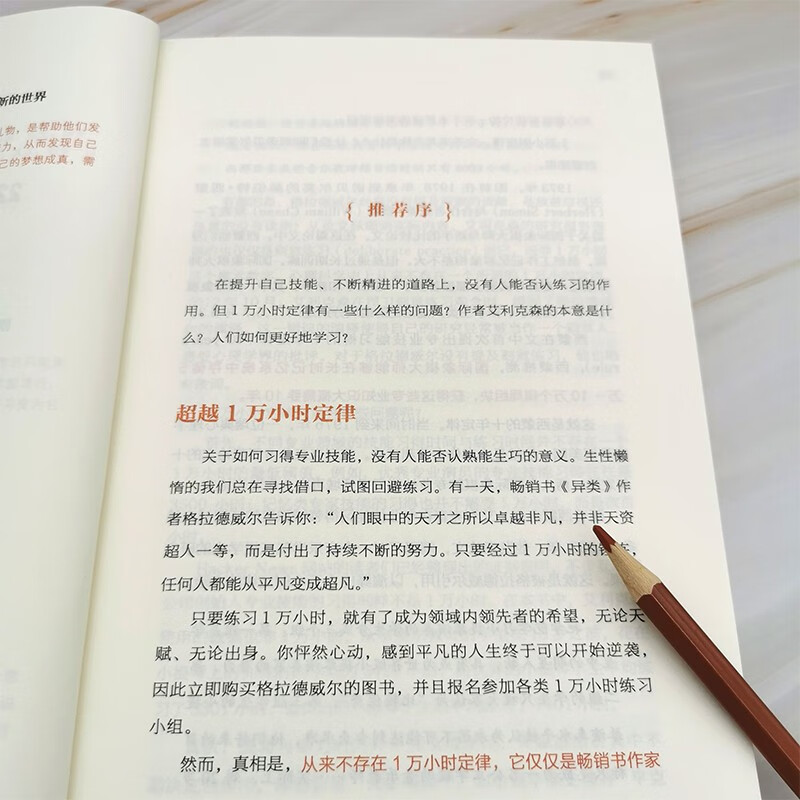 新的世界
礼物，是帮助他们发
力，从而发现自己
己的梦想成真，需
{ 推荐序 }
在提升自己技能、不断精进的道路上，没有人能否认练习的作
用。但 1 万小时定律有一些什么样的问题？作者艾利克森的本意是什
么？人们如何更好地学习？
超越 1 万小时定律
关于如何习得专业技能，没有人能否认熟能生巧的意义。生性懒
惰的我们总在寻找借口，试图回避练习。有一天，畅销书《异类》作
者格拉德威尔告诉你：“人们眼中的天才之所以卓越非凡，并非天资
超人一等，而是付出了持续不断的努力。只要经过 1 万小时的锤炼，
任何人都能从平凡变成超凡。”
只要练习 1 万小时，就有了成为领域内领先者的希望，无论天
赋、无论出身。你怦然心动，感到平凡的人生终于可以开始逆袭，
因此立即购买格拉德威尔的图书，并且报名参加各类 1 万小时练习
小组。
然而，真相是，从来不存在 1 万小时定律，它仅仅是畅销书作家